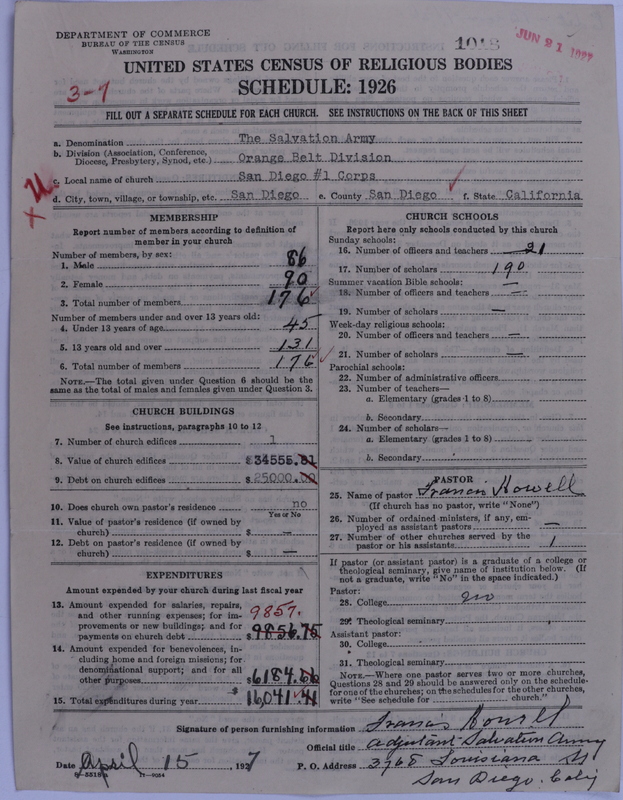 DEPARTMENT OF COMMERCE
BUREAU OF THE CENSUS
WASHINGTON
1018
JUN 21 1927
UNITED STATES CENSUS OF RELIGIOUS BODIES
SCHEDULE: 1926
3-7
FILL OUT A SEPARATE SCHEDULE FOR EACH CHURCH. SEE INSTRUCTIONS ON THE BACK OF THIS SHEET
a. Denomination The Salvation Army
b. Division (Association, Conference,
Diocese, Presbytery, Synod, etc.) Orange Belt Division
c. Local name of church San Diego #1 Corps
d. City, town, village, or township, etc. San Diego e. County San Diego f. State California
MEMBERSHIP
Report number of members according to definition of
member in your church
Number of members, by sex:
1. Male 86
2. Female 90
3. Total number of members 176
Number of members under and over 13 years old:
4. Under 13 years of age 45
5. 13 years old and over 131
6. Total number of members 176
NOTE.—The total given under Question 6 should be the
same as the total of males and females given under Question 3.
CHURCH BUILDINGS
See instructions, paragraphs 10 to 12
7. Number of church edifices 1
8. Value of church edifices $ 34555.81
9. Debt on church edifices $ 25000.00
10. Does church own pastor's residence no
Yes or No
11. Value of pastor's residence (if owned by
church) $ —
12. Debt on pastor's residence (if owned by
church) $ —
EXPENDITURES
Amount expended by your church during last fiscal year
13. Amount expended for salaries, repairs,
and other running expenses; for im-
provements or new buildings; and for
payments on church debt 9857. $ 9856.75
14. Amount expended for benevolences, in-
cluding home and foreign missions; for
denominational support; and for all
other purposes $ 6184.66
15. Total expenditures during year $ 16,041.41
CHURCH SCHOOLS
Report here only schools conducted by this church
Sunday schools:
16. Number of officers and teachers 21
17. Number of scholars 190
Summer vacation Bible schools: —
18. Number of officers and teachers —
19. Number of scholars —
Week-day religious schools:
20. Number of officers and teachers —
21. Number of scholars —
Parochial schools:
22. Number of administrative officers
23. Number of teachers—
a. Elementary (grades 1 to 8)
b. Secondary
24. Number of scholars—
a. Elementary (grades 1 to 8)
b. Secondary
PASTOR
25. Name of pastor Francis Howell
(If church has no pastor, write "None")
26. Number of ordained ministers, if any, em-
ployed as assistant pastors —
27. Number of other churches served by the
pastor or his assistants 1
If pastor (or assistant pastor) is a graduate of a college or
theological seminary, give name of institution below. (If
not a graduate, write "No" in the space indicated.)
Pastor:
28. College no
29. Theological seminary
Assistant pastor:
30. College
31. Theological seminary
NOTE.—Where one pastor serves two or more churches,
Questions 28 and 29 should be answered only on the schedule
for one of the churches; on the schedules for the other churches,
write "See schedule for church."
Signature of person furnishing information Francis Howell
Official title adjutant Salvation Army
Date April 15, 1927 P. O. Address 3768 Louisiana St
San Diego. Calif